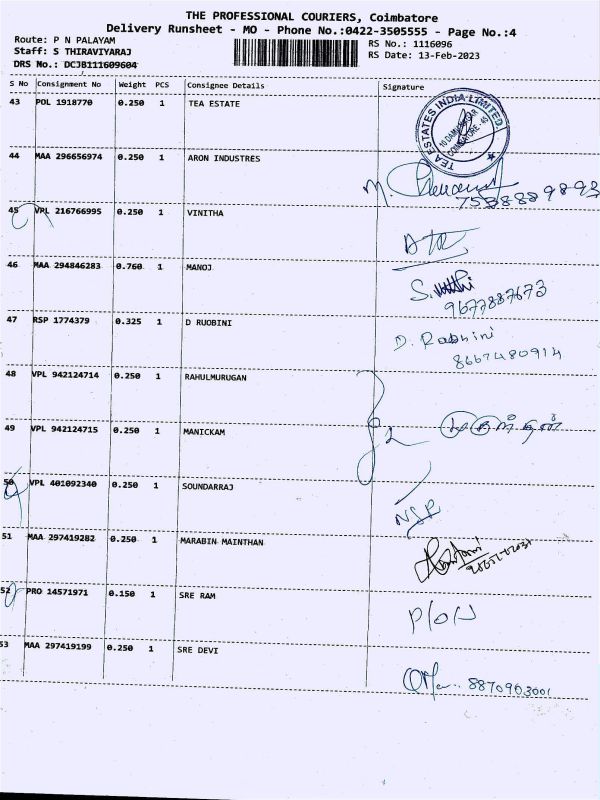 THE PROFESSIONAL COURIERS, Coimbatore
Delivery Runsheet - MO - Phone No.:0422-3505555 - Page No.:4
Route: P N PALAYAM
RS No.: 1116096
Staff: S THIRAVIYARAJ
RS Date: 13-Feb-2023
DRS No.: DCJB111609604
S No Consignment No Weight PCS Consignee Details Signature
43 POL 1918770 0.250 1 TEA ESTATE
TEA ESTATES INDIA LIMITED.
COIMBATORE - 45
44 MAA 296656974 0.250 1 ARON INDUSTRES
45 VPL 216766995 0.250 1 VINITHA
46 MAA 294846283 0.760 1 MANOJ
9677887673
47 RSP 1774379 0.325 1 D RUOBINI
D. Rabhini
8667480914
48 VPL 942124714 0.250 1 RAHULMURUGAN
49 VPL 942124715 0.250 1 MANICKAM
2
50 VPL 401092340 0.250 1 SOUNDARRAJ
NSP
51 MAA 297419282 0.250 1 MARABIN MAINTHAN
52 PRO 14571971 0.150 1 SRE RAM
53 MAA 297419199 0.250 1 SRE DEVI
8870903001